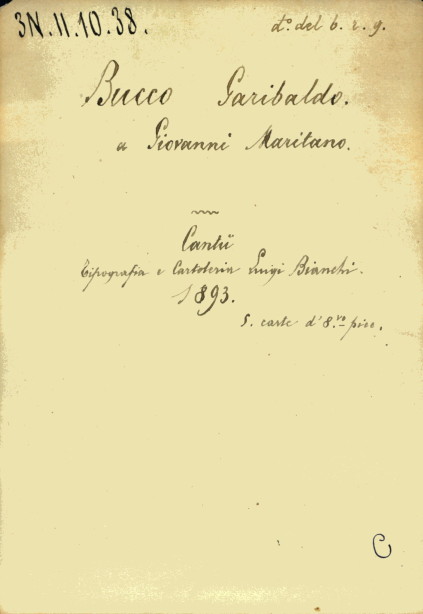 3N.II.10.38.
d.º del b. r. g.
Bucco Garibaldo.
a Giovanni Maritano.
Cantù
Tipografia e Cartoleria Luigi Bianchi.
1893.
5. carte d'8.vo picc.
C